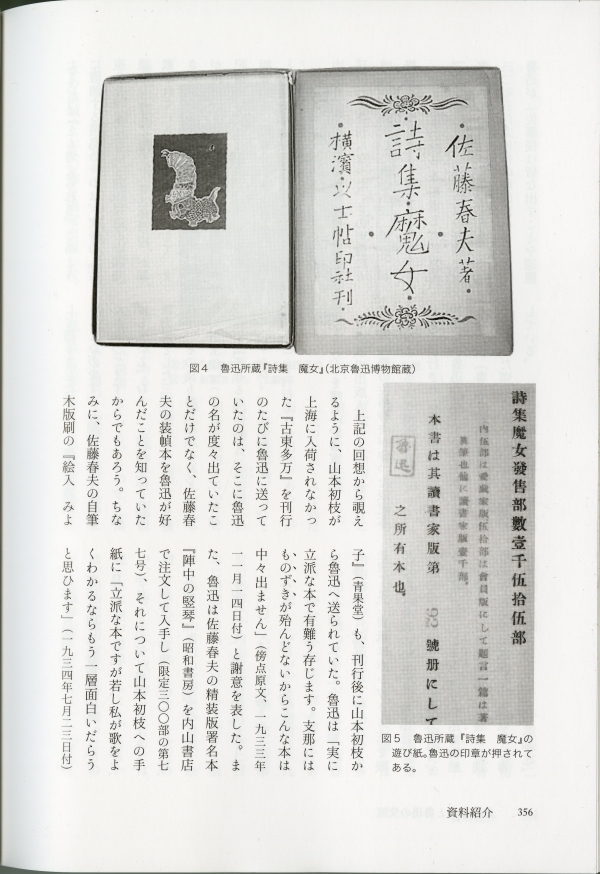 佐藤春夫著
詩集・魔女
横濱・以士帖印社刊
図4　魯迅所蔵『詩集　魔女』（北京魯迅博物館蔵）
詩集魔女發售部數壹千伍拾伍部
内伍部は愛蔵家版伍拾部は會員版にして題言一篇は著
本書は其讀書家版第 92 號册にして
之所有本也。
魯迅
図5　魯迅所蔵『詩集　魔女』の
遊び紙。魯迅の印章が押されて
ある。
上記の回想から覗え
るように、山本初枝が
上海に入荷されなかっ
た『古東多万』を刊行
のたびに魯迅に送って
いたのは、そこに魯迅
の名が度々出ていたこ
とだけでなく、佐藤春
夫の装幀本を魯迅が好
んだことを知っていた
からでもあろう。ちな
みに、佐藤春夫の自筆
木版刷の『絵入　みよ
子』（青果堂）も、刊行後に山本初枝か
ら魯迅へ送られていた。魯迅は「実に
立派な本で有難う存じます。支那には
ものずきが殆んどないからこんな本は
中々出ません」（傍点原文、一九三三年
一一月一四日付）と謝意を表した。ま
た、魯迅は佐藤春夫の精装版署名本
『陣中の竪琴』（昭和書房）を内山書店
で注文して入手し（限定三〇〇部の第七
七号）、それについて山本初枝への手
紙に「立派な本ですが若し私が歌をよ
くわかるならもう一層面白いだらう
と思ひます」（一九三四年七月二三日付）
資料紹介　356